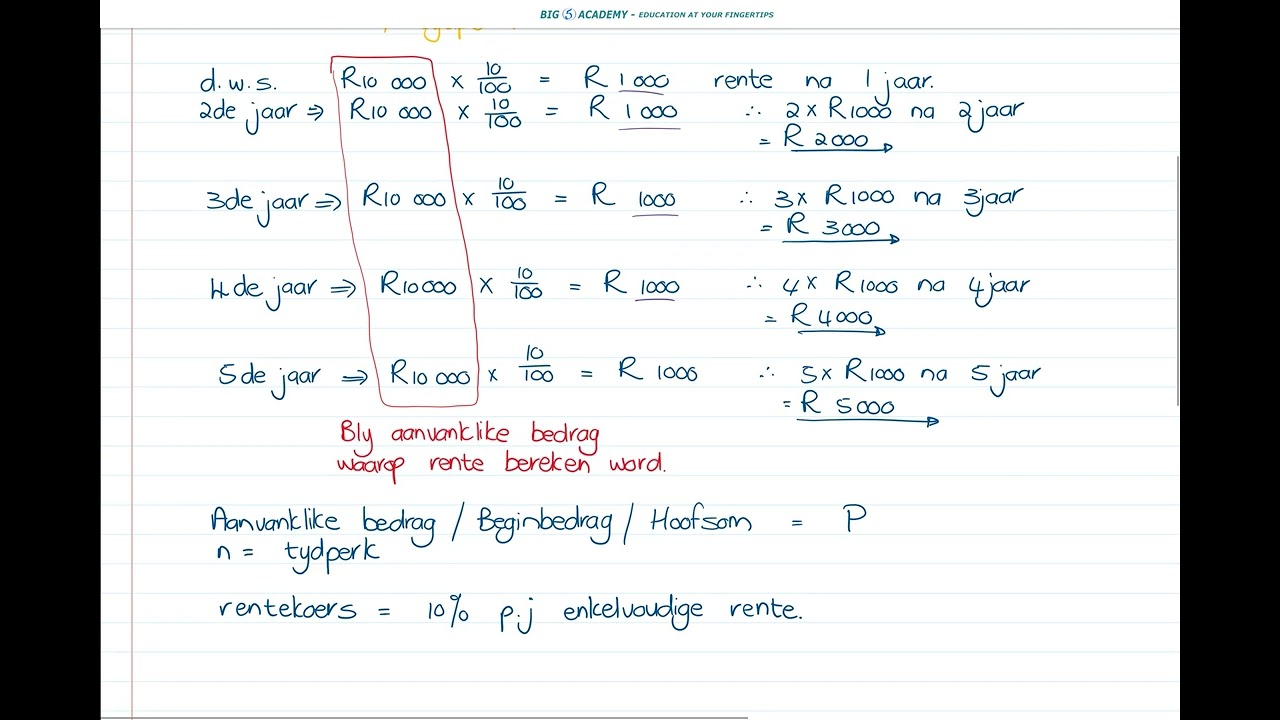 BIG 5 ACADEMY - EDUCATION AT YOUR FINGERTIPS
d.w.s. R10 000 × 10/100 = R 1 000 rente na 1 jaar.
2de jaar ⇒ R10 000 × 10/100 = R 1 000 ∴ 2 × R1000 na 2 jaar
= R 2000
3de jaar ⇒ R10 000 × 10/100 = R 1000 ∴ 3 × R1000 na 3 jaar
= R 3000
4de jaar ⇒ R10 000 × 10/100 = R 1000 ∴ 4 × R1000 na 4 jaar
= R 4000
5de jaar ⇒ R10 000 × 10/100 = R 1000 ∴ 5 × R1000 na 5 jaar
= R 5000
Bly aanvanklike bedrag
waarop rente bereken word.
Aanvanklike bedrag / Beginbedrag / Hoofsom = P
n = tydperk
rentekoers = 10% p.j enkelvoudige rente.